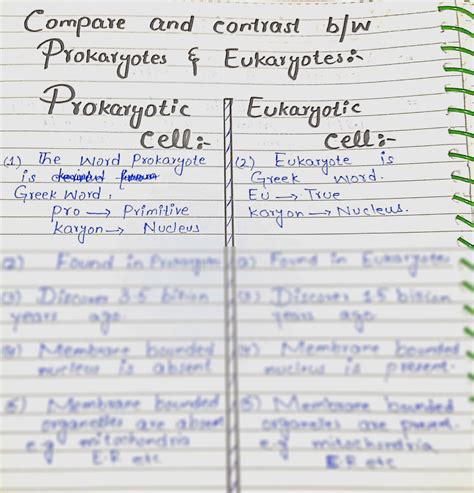 Compare and contrast b/w
Prokaryotes & Eukaryotes:-
Prokaryotic
Cell:-
(1) The word Prokaryote
is
Greek word.
Pro → Primitive
karyon → Nucleus
(2) Found in
(3) Discover 3.5 billion
years ago
(4) Membrane bounded
nucleus is absent
(5) Membrane bounded
organelles are absent
e.g mitochondria
E.R etc
Eukaryotic
Cell:-
(2) Eukaryote is
Greek word.
Eu → True
karyon → Nucleus.
Found in Eukaryote
Discover 1.5 billion
years ago
Membrane bounded
nucleus is present.
(5) Membrane bounded
organelles are present.
e.g mitochondria
E.R etc